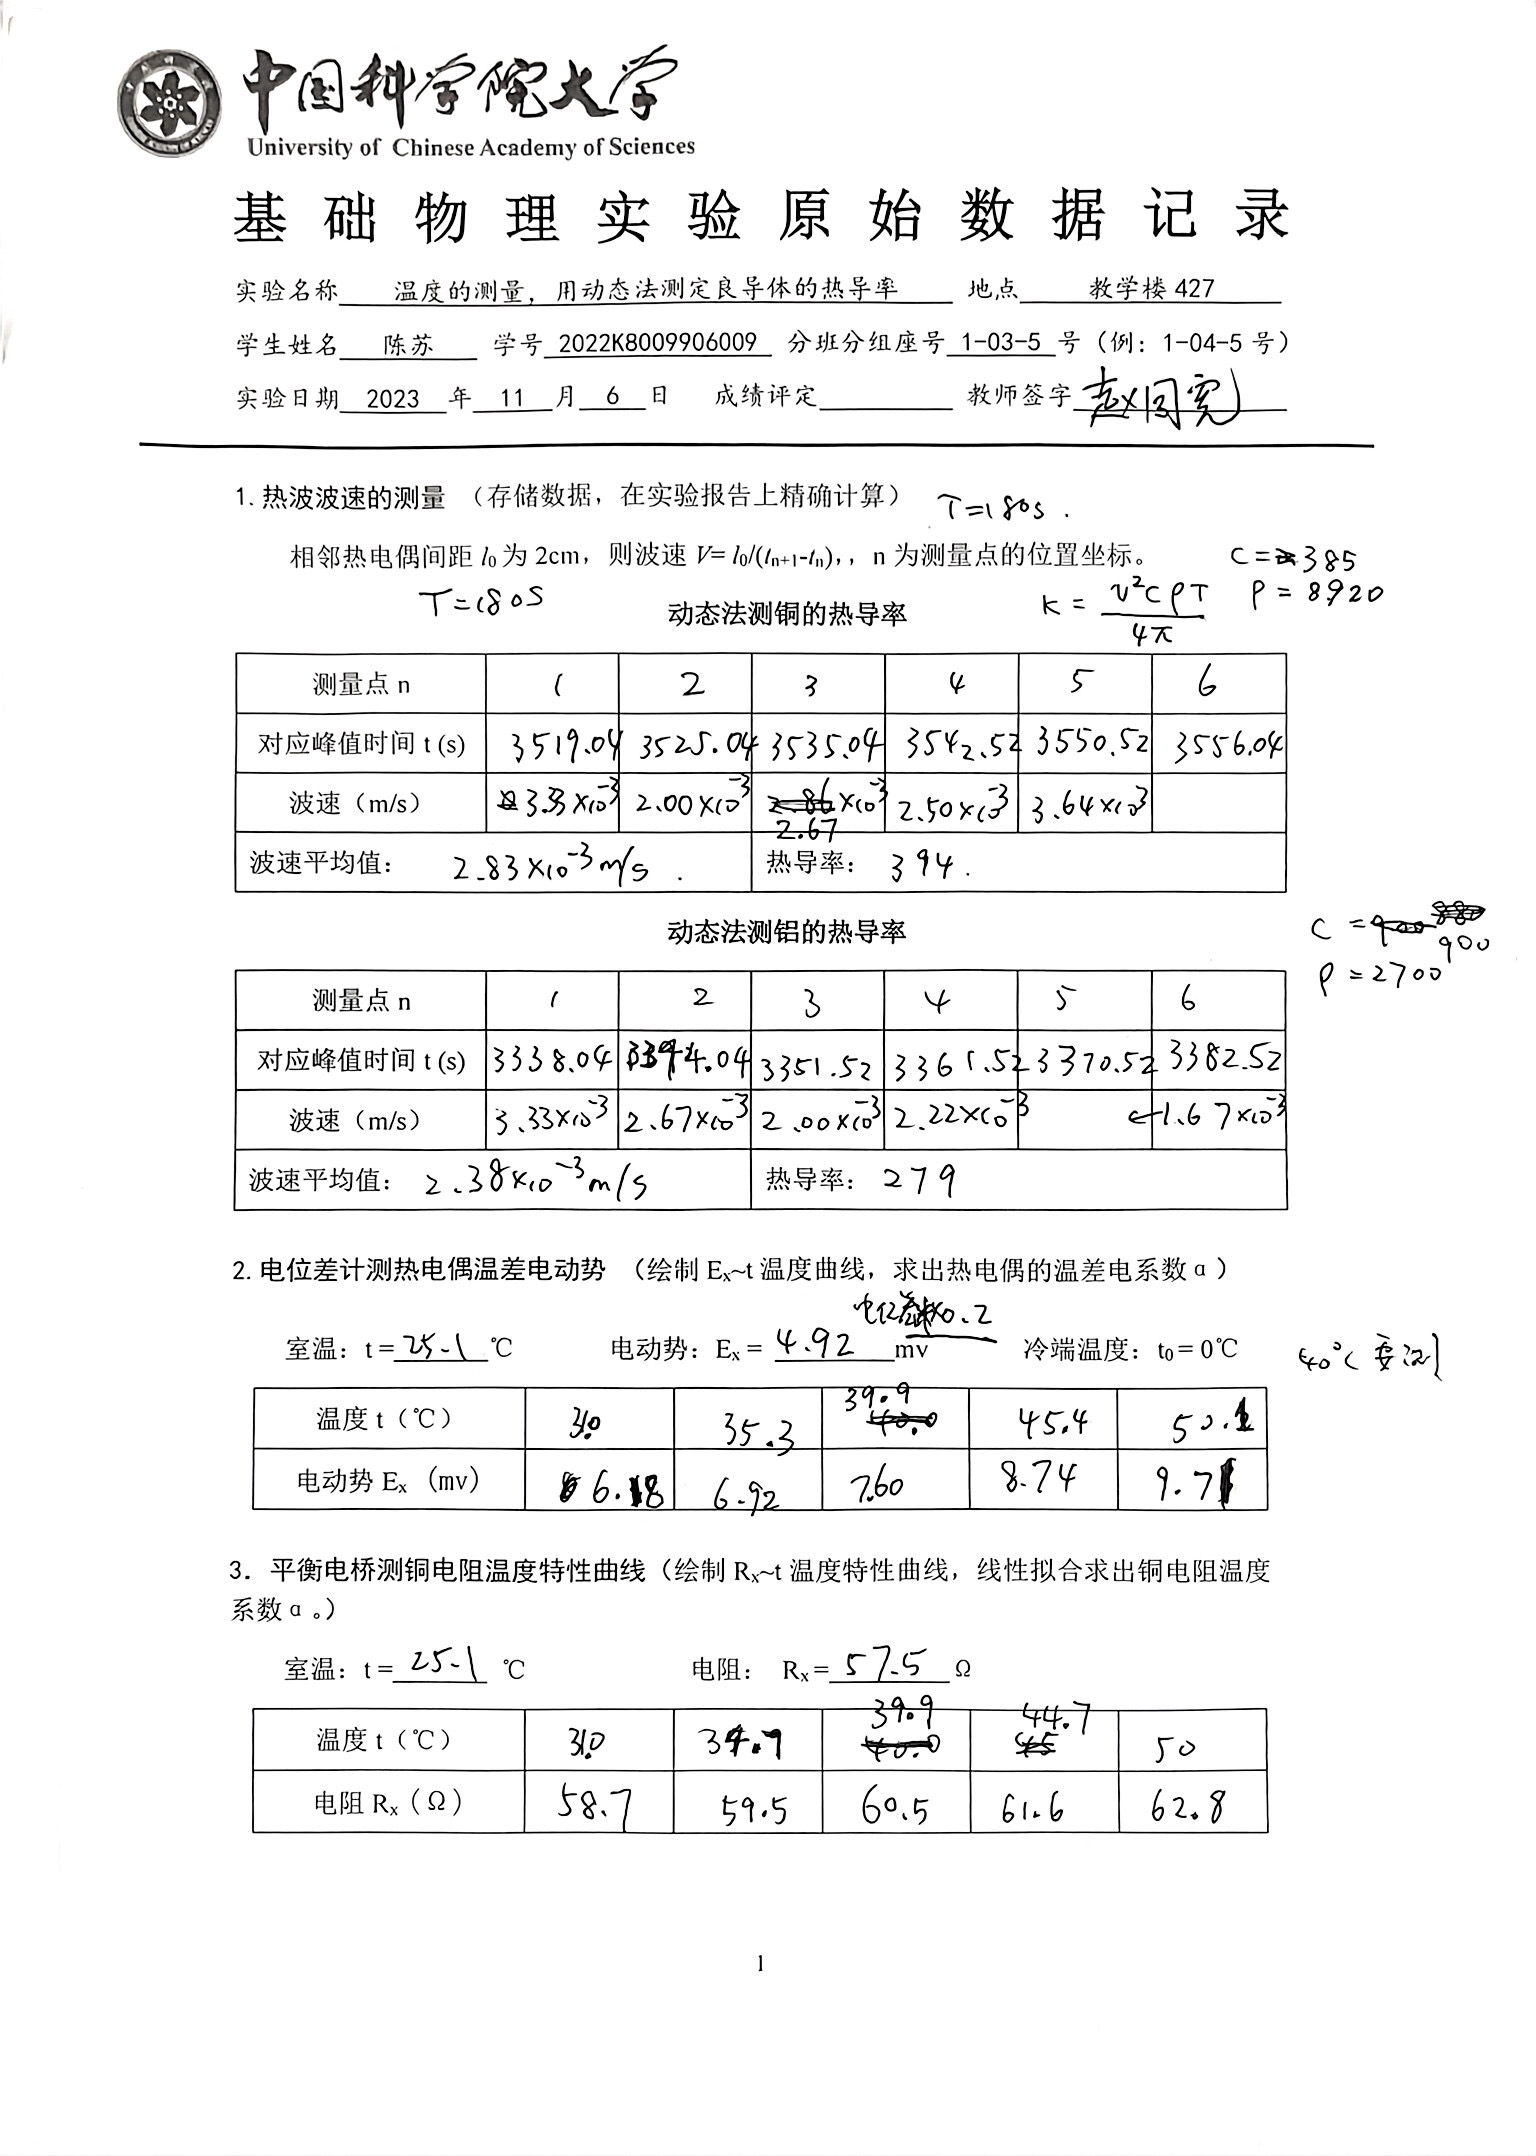 中国科学院大学
University of Chinese Academy of Sciences
基础物理实验原始数据记录
实验名称 温度的测量，用动态法测定良导体的热导率 地点 教学楼 427
学生姓名 陈苏 学号 2022K8009906009 分班分组座号 1-03-5 号（例：1-04-5 号）
实验日期 2023 年 11 月 6 日 成绩评定 教师签字
1.热波波速的测量 （存储数据，在实验报告上精确计算） T=180s.
相邻热电偶间距 l0 为 2cm，则波速 V= l0/(tn+1-tn),，n 为测量点的位置坐标。 C=385
T=180S 动态法测铜的热导率 K = v²CρT/4π ρ=8920
测量点 n 1 2 3 4 5 6
对应峰值时间 t (s) 3519.04 3525.04 3535.04 3542.52 3550.52 3556.04
波速（m/s） 3.33×10⁻³ 2.00×10⁻³ 2.86×10⁻³ 2.50×10⁻³ 3.64×10⁻³
2.67
波速平均值： 2.83×10⁻³m/s. 热导率： 394.
动态法测铝的热导率 C=900 880
900
ρ=2700
测量点 n 1 2 3 4 5 6
对应峰值时间 t (s) 3338.04 3344.04 3351.52 3361.52 3370.52 3382.52
波速（m/s） 3.33×10⁻³ 2.67×10⁻³ 2.00×10⁻³ 2.22×10⁻³ ←1.67×10⁻³
波速平均值： 2.38×10⁻³m/s 热导率： 279
2.电位差计测热电偶温差电动势 （绘制 Ex~t 温度曲线，求出热电偶的温差电系数α）
×0.2
室温：t = 25.1 ℃ 电动势：Ex = 4.92 mv 冷端温度：t0 = 0℃ 40℃要测
温度 t（℃） 31.0 35.3 39.9 40.0 45.4 50.1
电动势 Ex (mv) 6.18 6.92 7.60 8.74 9.71
3．平衡电桥测铜电阻温度特性曲线（绘制 Rx~t 温度特性曲线，线性拟合求出铜电阻温度
系数α。）
室温：t = 25.1 ℃ 电阻： Rx = 57.5 Ω
温度 t（℃） 31.0 34.7 39.9 40.0 44.7 45 50
电阻 Rx（Ω） 58.7 59.5 60.5 61.6 62.8
1